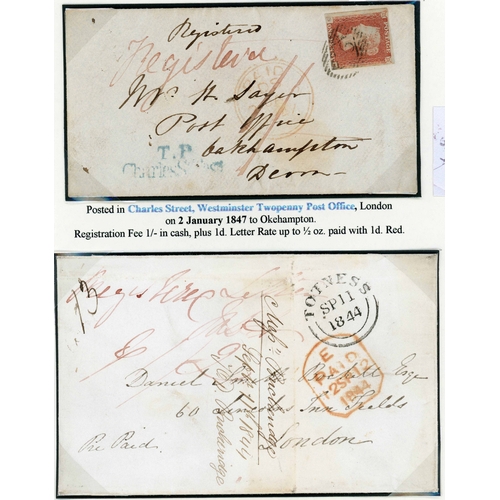 Registered
Registered
Mr. H. Sayer
Post Office
Oakhampton
Devon
T.P
Charles St
Posted in Charles Street, Westminster Twopenny Post Office, London
on 2 January 1847 to Okehampton.
Registration Fee 1/- in cash, plus 1d. Letter Rate up to ½ oz. paid with 1d. Red.
13
Registered Letter
TOTNESS
SP 11
1844
E
PAID
12 SP 12
1844
Daniel Smith Esqre
60 Lincolns Inn Fields
London
Pre Paid
Septr 11th 1844